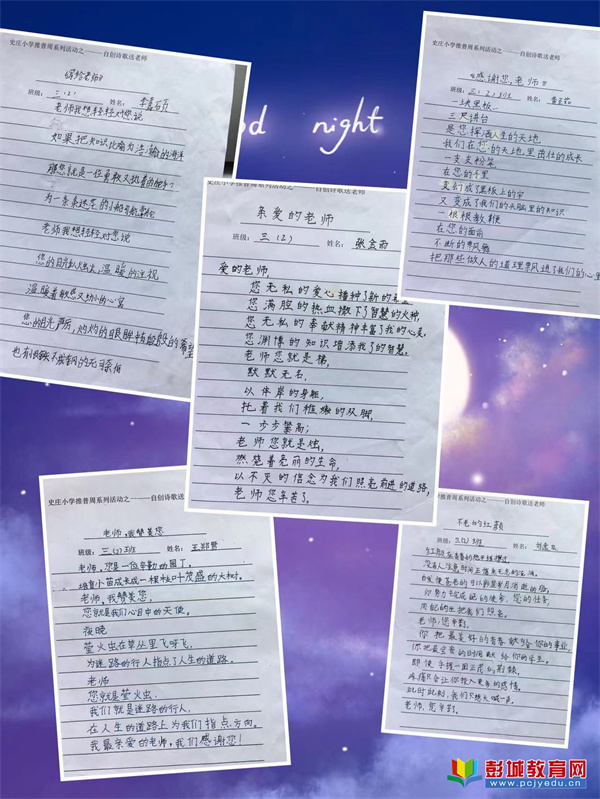 史庄小学推普周系列活动之———自创诗歌送老师
《写给老师》
班级：三（2） 姓名：
老师我想轻轻对您说
如果把知识比喻为浩瀚的海洋
那您就是一位勇敢又执着的
为一条条迷茫的小船导航掌舵
老师我想轻轻对您说
您的目光如炬火，温暖的注视
温暖着
您的目光严厉，灼灼的眼眸
也有恨铁不成钢的无可奈何
good night
史庄小学推普周系列活动之———自创诗歌送老师
《感谢您，老师》
班级：三（2）班 姓名：
一块黑板
三尺讲台
是您挥洒人生的天地
我们在您的天地里茁壮的成长
一支支粉笔
在您的手里
变幻成了黑板上的字
又变成了我们的头脑里的知识
一根根教鞭
在您的面前
不断的飘扬
把那些做人的道理飘进了我们的心里
史庄小学推普周系列活动之———自创诗歌送老师
亲爱的老师
班级：三（2） 姓名：张金雨
爱的老师，
您无私的爱心播种了新的
您满腔的热血撒下了智慧的火种，
您无私的奉献精神丰富了我的心灵，
您渊博的知识增添我了的智慧。
老师您就是梯，
默默无名，
以伟岸的身躯，
托着我们稚嫩的双脚，
一步步攀高；
老师您就是烛，
燃烧着亮丽的生命，
以不灭的信念为我们照亮前进的道路，
老师您辛苦了。
史庄小学推普周系列活动之———自创诗歌送老师
老师，我赞美您
班级：三（2）班 姓名：
老师，您是一位辛勤的园丁。
培育小苗成长成一棵枝叶茂盛的大树。
老师，我赞美您，
您就是我们心目中的天使。
夜晚
萤火虫在草丛里飞呀飞，
为迷路的行人指点了人生的道路。
老师
您就是萤火虫，
我们就是迷路的行人，
在人生的道路上为我们指点方向。
我最亲爱的老师，我们感谢您！
史庄小学推普周系列活动之———自创诗歌送老师
不老的红颜
班级：三（2）班 姓名：
没有人注意时间正值来无息的流淌。
你努力完成
老师，您辛勤，
你把最美好的青春献给你的事业，
你把最宝贵的时间献给你的学生。
即使手握一团荆棘，
疼痛只会让你投入更多的感情。
此时此刻，我们只想大喊一声，
老师，您辛勤。
彭城教育网
www.pcjyedu.cn